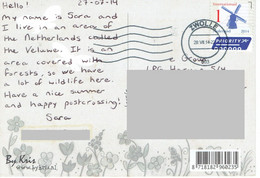 Hello! 27-07-14
My name is Sara and
I live in an area of
the Netherlands called
the Veluwe. It is an
area covered with
forests, so we have
a lot of wildlife here.
Have a nice summer
and happy postcrossing!
Sara
ZWOLLE
28.VII.14
International
1
Nederland 2014
PRIORITY
By Kris
8 718182 960235